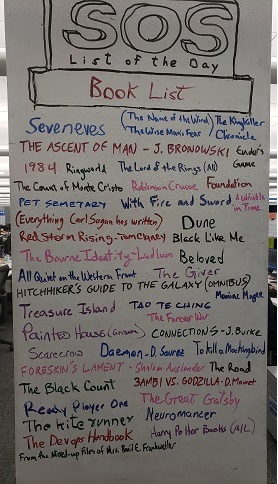 SOS
List of the Day
Book List
Seveneves (The Name of the Wind) The Kingkiller
The Wise Man's Fear Chronicle
THE ASCENT OF MAN - J. BRONOWSKI Ender's
Game
1984 Ringworld The Lord of the Rings (All)
The Count of Monte Cristo Robinson Crusoe Foundation
PET SEMETARY With Fire and Sword A Wrinkle
in Time
(Everything Carl Sagan has written) Dune
Red Storm Rising - Tom Clancy Black Like Me
The Bourne Identity - Ludlum Beloved
All Quiet on the Western Front The Giver
HITCHHIKER'S GUIDE TO THE GALAXY (OMNIBUS)
Maniac Magee
Treasure Island TAO TE CHING
The Forever War
Painted House (Grisham) CONNECTIONS - J. Burke
Scarecrow Daemon - D. Suarez To kill a Mockingbird
FORESKIN'S LAMENT - Shalom Auslander The Road
The Black Count BAMBI VS. GODZILLA - D. Mamet
Ready Player One The Great Gatsby
The kite runner Neuromancer
The Devops Handbook Harry Potter Books (ALL)
From the Mixed-up Files of Mrs. Basil E. Frankweiler